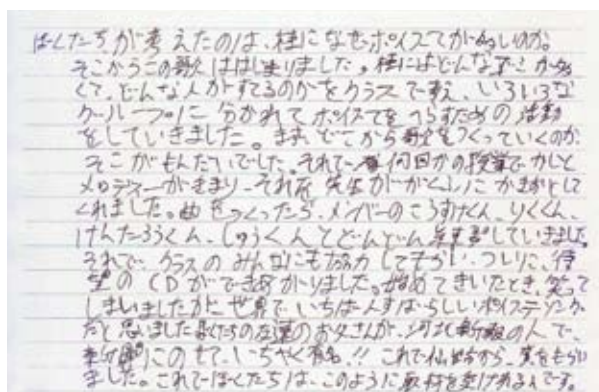 ぼくたちが考えたのは、桂になぜポイステが多いのか。
そこからこの歌ははじまりました。桂にはどんなごみが多
くて、どんな人がすてるのかをクラスで考え、いろいろな
グループに分かれてポイステをへらすための活動
をしていきました。まず、どこから歌をつくっていくのか
そこがもんだいでした。それで何回かの授業でかしと
メロディーがきまり、それを先生ががくふにかきおとして
くれました。曲をつくったら、メンバーのこうすけくん、りくくん、
けんたろうくん、しゅうくんとどんどん していきました。
それで、クラスのみんなにも協力してもらい、ついに、待
望のCDができあがりました。始めてきいたとき、笑って
しまいましたがに世界でいちばんすばらしいポイステソング
だと思いました の友達のお父さんが、 新聞の人で、
新聞にのせて、いちやく有名!! これで から、賞をもらい
ました。これでぼくたちは、このように取材を受けれるんです。